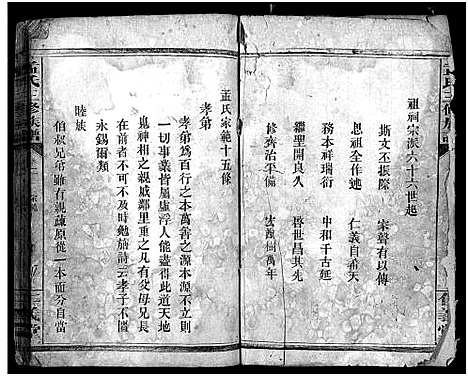 祖祠宗派六十六世起
斯文丕振際 家聲有以傳
思祖全作述 仁義自希天
務本祥瑞衍 中和千古延
繼聖開良久 啓世昌其先
修齊治平備 樹萬年
孟氏家範十五條
孝弟
孝弟為百行之本萬善之源本源不立則
一切事業皆屬虛浮人能盡得此道天地
鬼神相之親戚鄰里重之有父母兄長
在前者不可不及時勉旃詩云孝子不匱
永錫爾類
睦族
伯叔兄弟雖有親疏原從一本而分自當
孟氏三修族譜